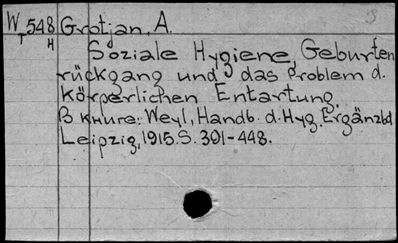 W 548 Grotjan, A.
T
H
Soziale Hygiene, Geburten
rückgang und das Problem d.
körperlichen Entartung.
В книге: Weyl, Handb. d. Hyg. Ergänzbd
Leipzig, 1915. S. 391-448.